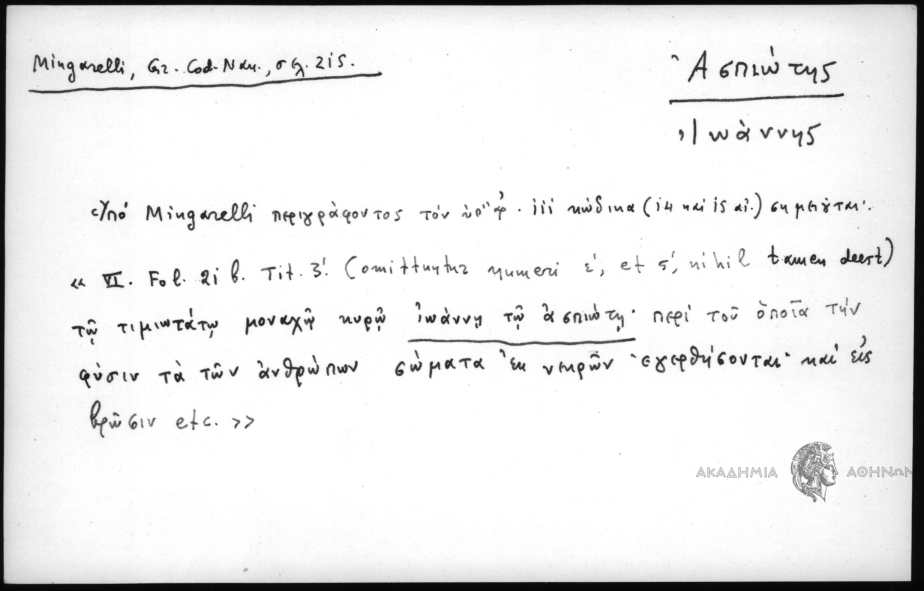 Mingarelli, Gr. Cod. Nan., σελ. 215.
Ἀσπιώτης
Ἰωάννης
Ὑπό Mingarelli περιγράφοντος τόν ὑπ' ἀρ. 111 κώδικα (14 καί 15 αἰ.) σημειοῦται·
« VI. Fol. 21 b. Tit. ζ'. (omittuntur numeri ε', et ς', nihil tamen deest)
τῷ τιμιωτάτῳ μοναχῷ κυρῷ ἰωάννῃ τῷ ἀσπιώτῃ· περί τοῦ ὁποῖα τήν
φύσιν τὰ τῶν ἀνθρώπων σώματα ἐκ νεκρῶν ἐγερθήσονται· καί εἰς
βρῶσιν etc. »
ΑΚΑΔΗΜΙΑ ΑΘΗΝΩΝ